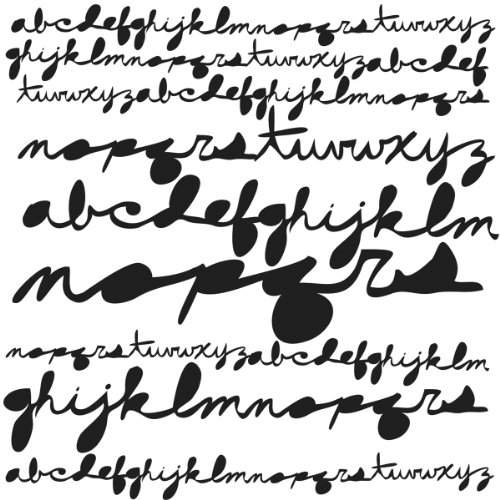 abcdefghijklmnopqrstuvwxyz
ghijklmnopqrstuvwxyzabcdef
tuvwxyzabcdefghijklmnopqrs
nopqrstuvwxyz
abcdefghijklm
nopqrs
nopqrstuvwxyzabcdefghijklm
ghijklmnopqrs
abcdefghijklmnopqrstuvwxyz